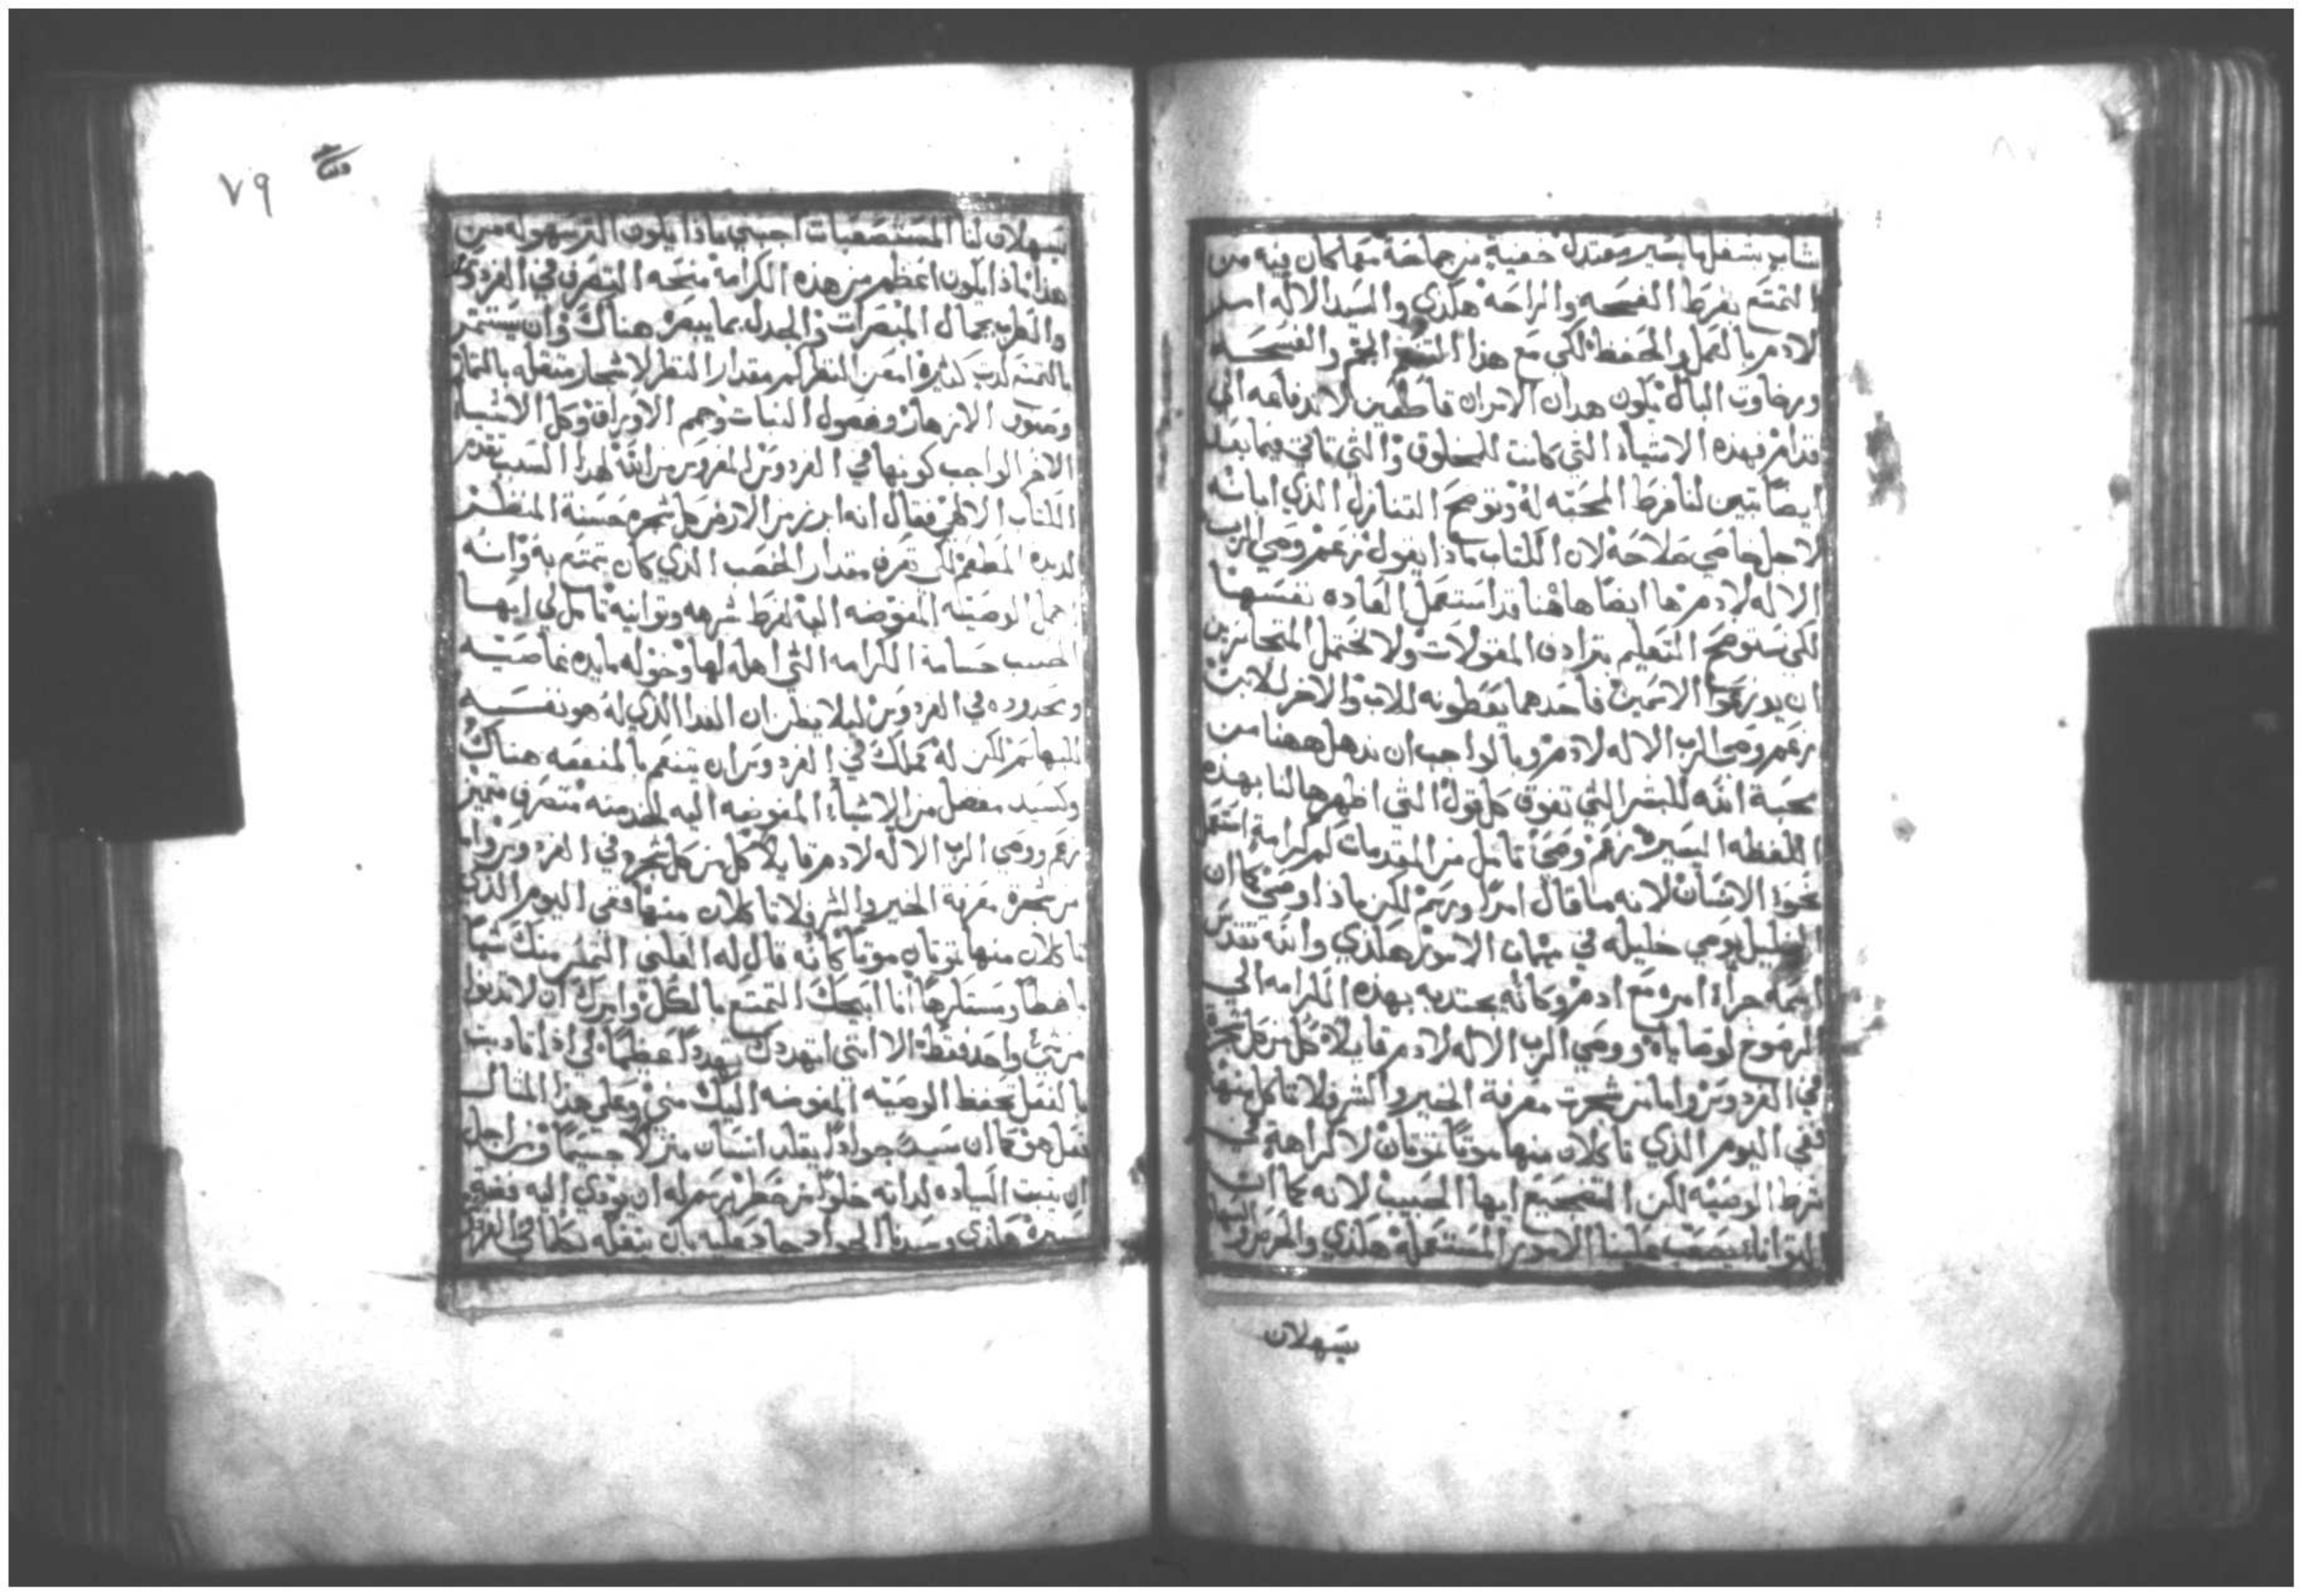 شاب بشغل ما يسير معتدل خفية من جماحة مهما كان فيه من
التمتع بفرط الفسحه والراحة هكذي والسيد الاله امر
لادم بالعمل والحفظ لكي مع هذا التنعم الجم والفسحه
ورخاوت البال يكون هدان الامران قاطعين لاندفاعه الي
قدام فهذه الاشياء التي كانت للمخلوق والتي تاتي فيما بعد
ايضًا تبين لنا فرط المحبه له وتوضح التنازل الذي ابانه
لاجلها هي صلاحة لان الكتاب ماذا يقول زعم ومي الرب
الاله لادم ها ايضًا هاهنا قد استعمل العاده نفسها
لكي سنوضح التعليم بترادف المقولات ولا نحتمل المتجاسرين
ان يوزعوا الاسمين فاحدهما يعطونه للاب والاخر للابن
زعم ومي الرب الاله لادم وبالواجب ان نذهل ههنا من
محبة الله للبشر التي تفوق كل قول التي اظهرها لنا بهذه
اللفظه اليسيره زعم ومي تامل من المقدمات كم كرامة استعمل
نحو الانسان لانه ما قال امر ورسم لكن ماذا اومي كما ان
الخليل يومي خليله في مهمات الامور هكذي والله تقدس
اسمه جراء امره مع ادم وكانه يجتديه بهذه الكرامه الي
الرضوخ لوصاياه وومي الرب الاله لادم قايلاً كل من كل شجرة
في الفردوس واما من شجرت معرفة الخير والشر فلا تاكل منها
ففي اليوم الذي تاكلان منها موتًا تموتان لا كراهة في
شرط الوصيه لكن التضجيع ايها الحبيب لانه كما ان
التوانا يصعب علينا الامور المستعملة هكذي والحرص والنهضة
يسهلان
يسهلان لنا المستصعبات اجبني ماذا يكون اكثر سهوله من
هذا ماذا يكون اعظم من هذه الكرامه منحه التصرف في الفردوس
والطرب بجمال المبصرات والجدل بما يبصر هناك وان يستتمر
بالتمتع لدت كثيرة امعن النظر كم مقدار النظر لاشجار متقله بالثمار
وصنوف الازهار وفصول النبات وجم الاوراق وكل الاشيا
الاخر الواجب كونها في الفردوس المغروس من الله لهذا السبب تقدم
الكتاب الالاهي فقال انه ابرز من الارض كل شجره حسنة المنظر
لديده المطعم لكي تعرف مقدار الخصب الذي كان يتمتع به وانه
اهمل الوصيه المفوضه اليه لفرط شرهه وتوانيه تامل لي ايها
الحبيب جسامة الكرامه التي اهله لها وخوله مايده خاصيه
ومحدوده في الفردوس ليلا يظن ان الغدا الذي له هو نفسه
للبهايم لكن له كملك في الفردوس ان يتنعم بالمنفعه هناك
وكسيد مفضل من الاشياء المفوضه اليه لخدمته متصرف متميز
زعم وومي الرب الاله لادم قايلاً كل من كل شجره في الفردوس واما
من شجرة معرفة الخير والشر فلا تاكلان منها ففي اليوم الذي
تاكلان منها تموتان موتًا كانه قال له العلني التمس منك شيًا
باهظًا ومستكرهًا انا ابيحك التمتع بالكل وامرك ان لا تدنوا
من شيء واحد فقط الا انني اتهددك تهددًا عظيمًا لكي اذا تاديت
بالفعل تحفظ الوصيه المفوضه اليك مني وعلى هذا المثال
فعل هو كما ان سيد جواد يقلد انسان منزلاً جسيمًا ومن اجل
ان يثبت السياده لداته خلوًا من خطر يرسم له ان يودي اليه فضه
يسيره هكذي وسيدنا الجواد جاد عليه بان يتفله بكلما في الفردوس
٧٩